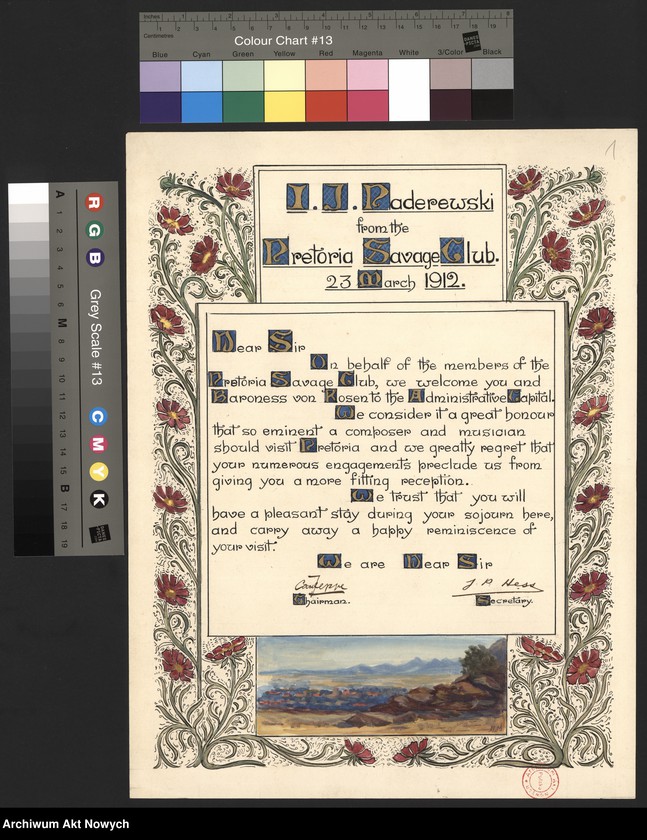 Inches
Centimetres
Colour Chart #13
Blue Cyan Green Yellow Red Magenta White 3/Color Black
R
G
B
Grey Scale #13
C
M
Y
K
A 1 2 3 4 5 6 M 8 9 10 11 12 13 14 15 B 17 18 19
1
I. J. Paderewski
from the
Pretoria Savage Club.
23 March 1912.
Dear Sir
On behalf of the members of the
Pretoria Savage Club, we welcome you and
Baroness von Rosen to the Administrative Capital.
We consider it a great honour
that so eminent a composer and musician
should visit Pretoria and we greatly regret that
your numerous engagements preclude us from
giving you a more fitting reception.
We trust that you will
have a pleasant stay during your sojourn here,
and carry away a happy reminiscence of
your visit.
We are Dear Sir
J P Hess
Chairman. Secretary.
Archiwum Akt Nowych